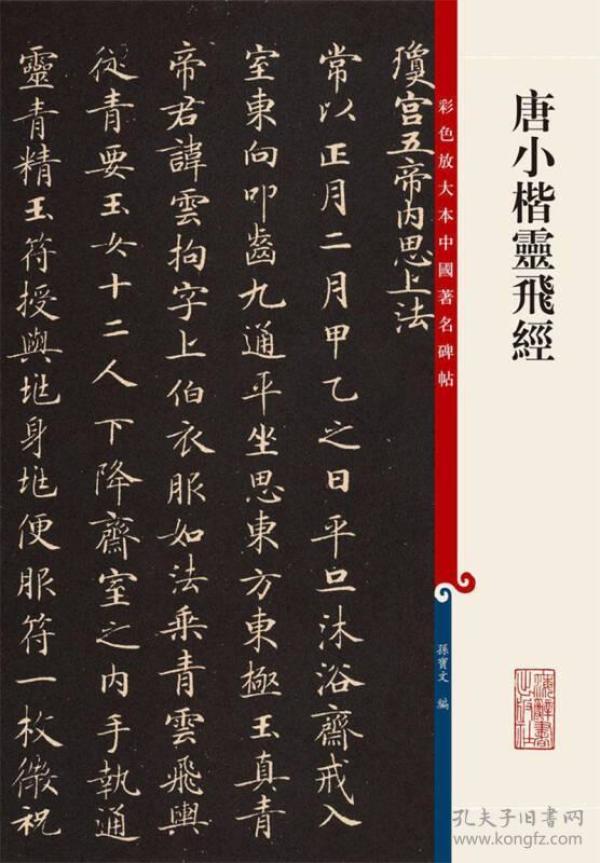 唐小楷靈飛經
彩色放大本中國著名碑帖
孫寶文 編
上海辭書出版社
瓊宫五帝内思上法
常以正月二月甲乙之日平旦沐浴齋戒入
室東向叩齒九通平坐思東方東極玉真青
帝君諱雲拘字上伯衣服如法乘青雲飛輿
從青要玉女十二人下降齋室之内手執通
靈青精玉符授與兆身兆便服符一枚微祝
孔夫子旧书网
www.kongfz.com